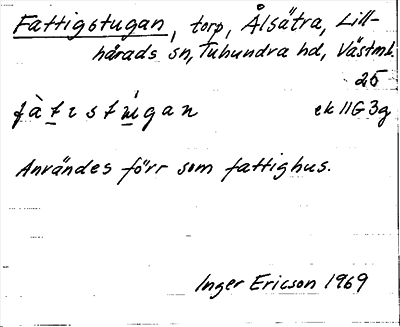 Fattigstugan, torp, Ålsätra, Lill-
hårads sn, Tuhundra hd, Västml.
25
fàtistúgan ek 11G3g
Användes förr som fattighus.
Inger Ericson 1969